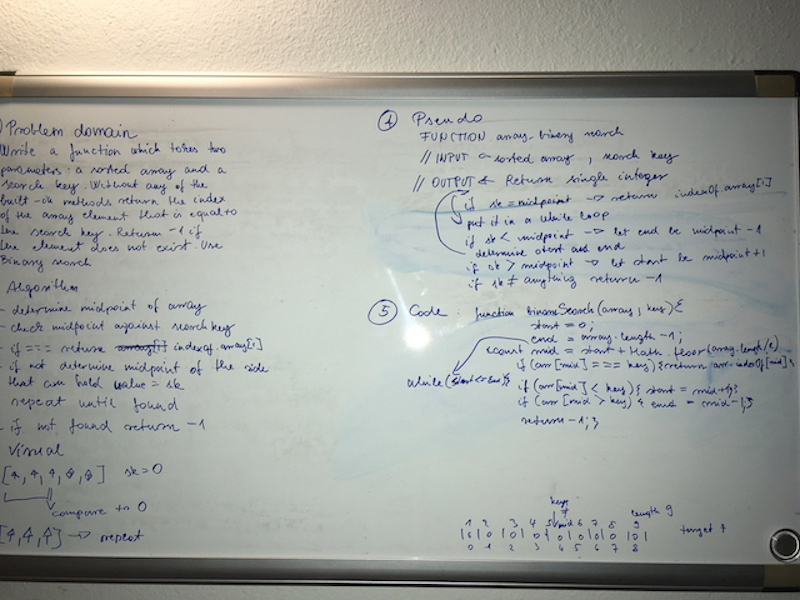 ) Problem domain
Write a function which takes two
parameters: a sorted array and a
search key. Without any of the
built-in methods return the index
of the array element that is equal to
the search key. Return -1 if
the element does not exist. Use
Binary search
Algorithm
- determine midpoint of array
- check midpoint against search key
- if === return array[i] indexOf.array[i]
- if not determine midpoint of the side
that can hold value = sk
repeat until found
- if not found return -1
Visual
sk = 0
compare to 0
repeat
4 Pseudo
FUNCTION array-binary search
// INPUT ← sorted array, search key
// OUTPUT ← Return single integer
if sk = midpoint → return indexOf.array[i]
put it in a while loop
if sk < midpoint → let end be midpoint -1
determine start and end
if sk > midpoint → let start be midpoint +1
if sk ≠ anything return -1
5 Code: function binarySearch(array, key){
start = 0;
end = array.length -1;
const mid = start + Math.floor(array.length/2)
if (arr[mid] === key) {return arr.indexOf[mid]
while (start <= end){
if (arr[mid] < key){ start = mid+1;}
if (arr[mid > key) { end = mid-1;}
return -1;}
key
7
1 2 3 4 5 mid 6 7 8 9
length 9
target 7
0 1 2 3 4 5 6 7 8